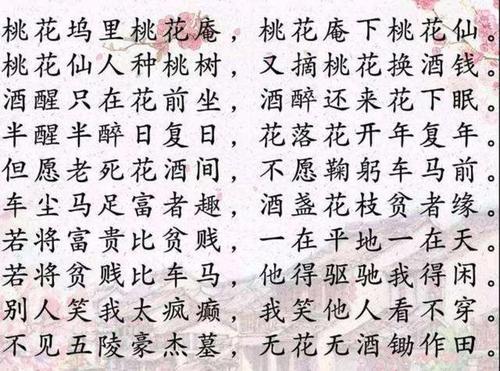 桃花坞里桃花庵，桃花庵下桃花仙。
桃花仙人种桃树，又摘桃花换酒钱。
酒醒只在花前坐，酒醉还来花下眠。
半醒半醉日复日，花落花开年复年。
但愿老死花酒间，不愿鞠躬车马前。
车尘马足富者趣，酒盏花枝贫者缘。
若将富贵比贫贱，一在平地一在天。
若将贫贱比车马，他得驱驰我得闲。
别人笑我太疯癫，我笑他人看不穿。
不见五陵豪杰墓，无花无酒锄作田。